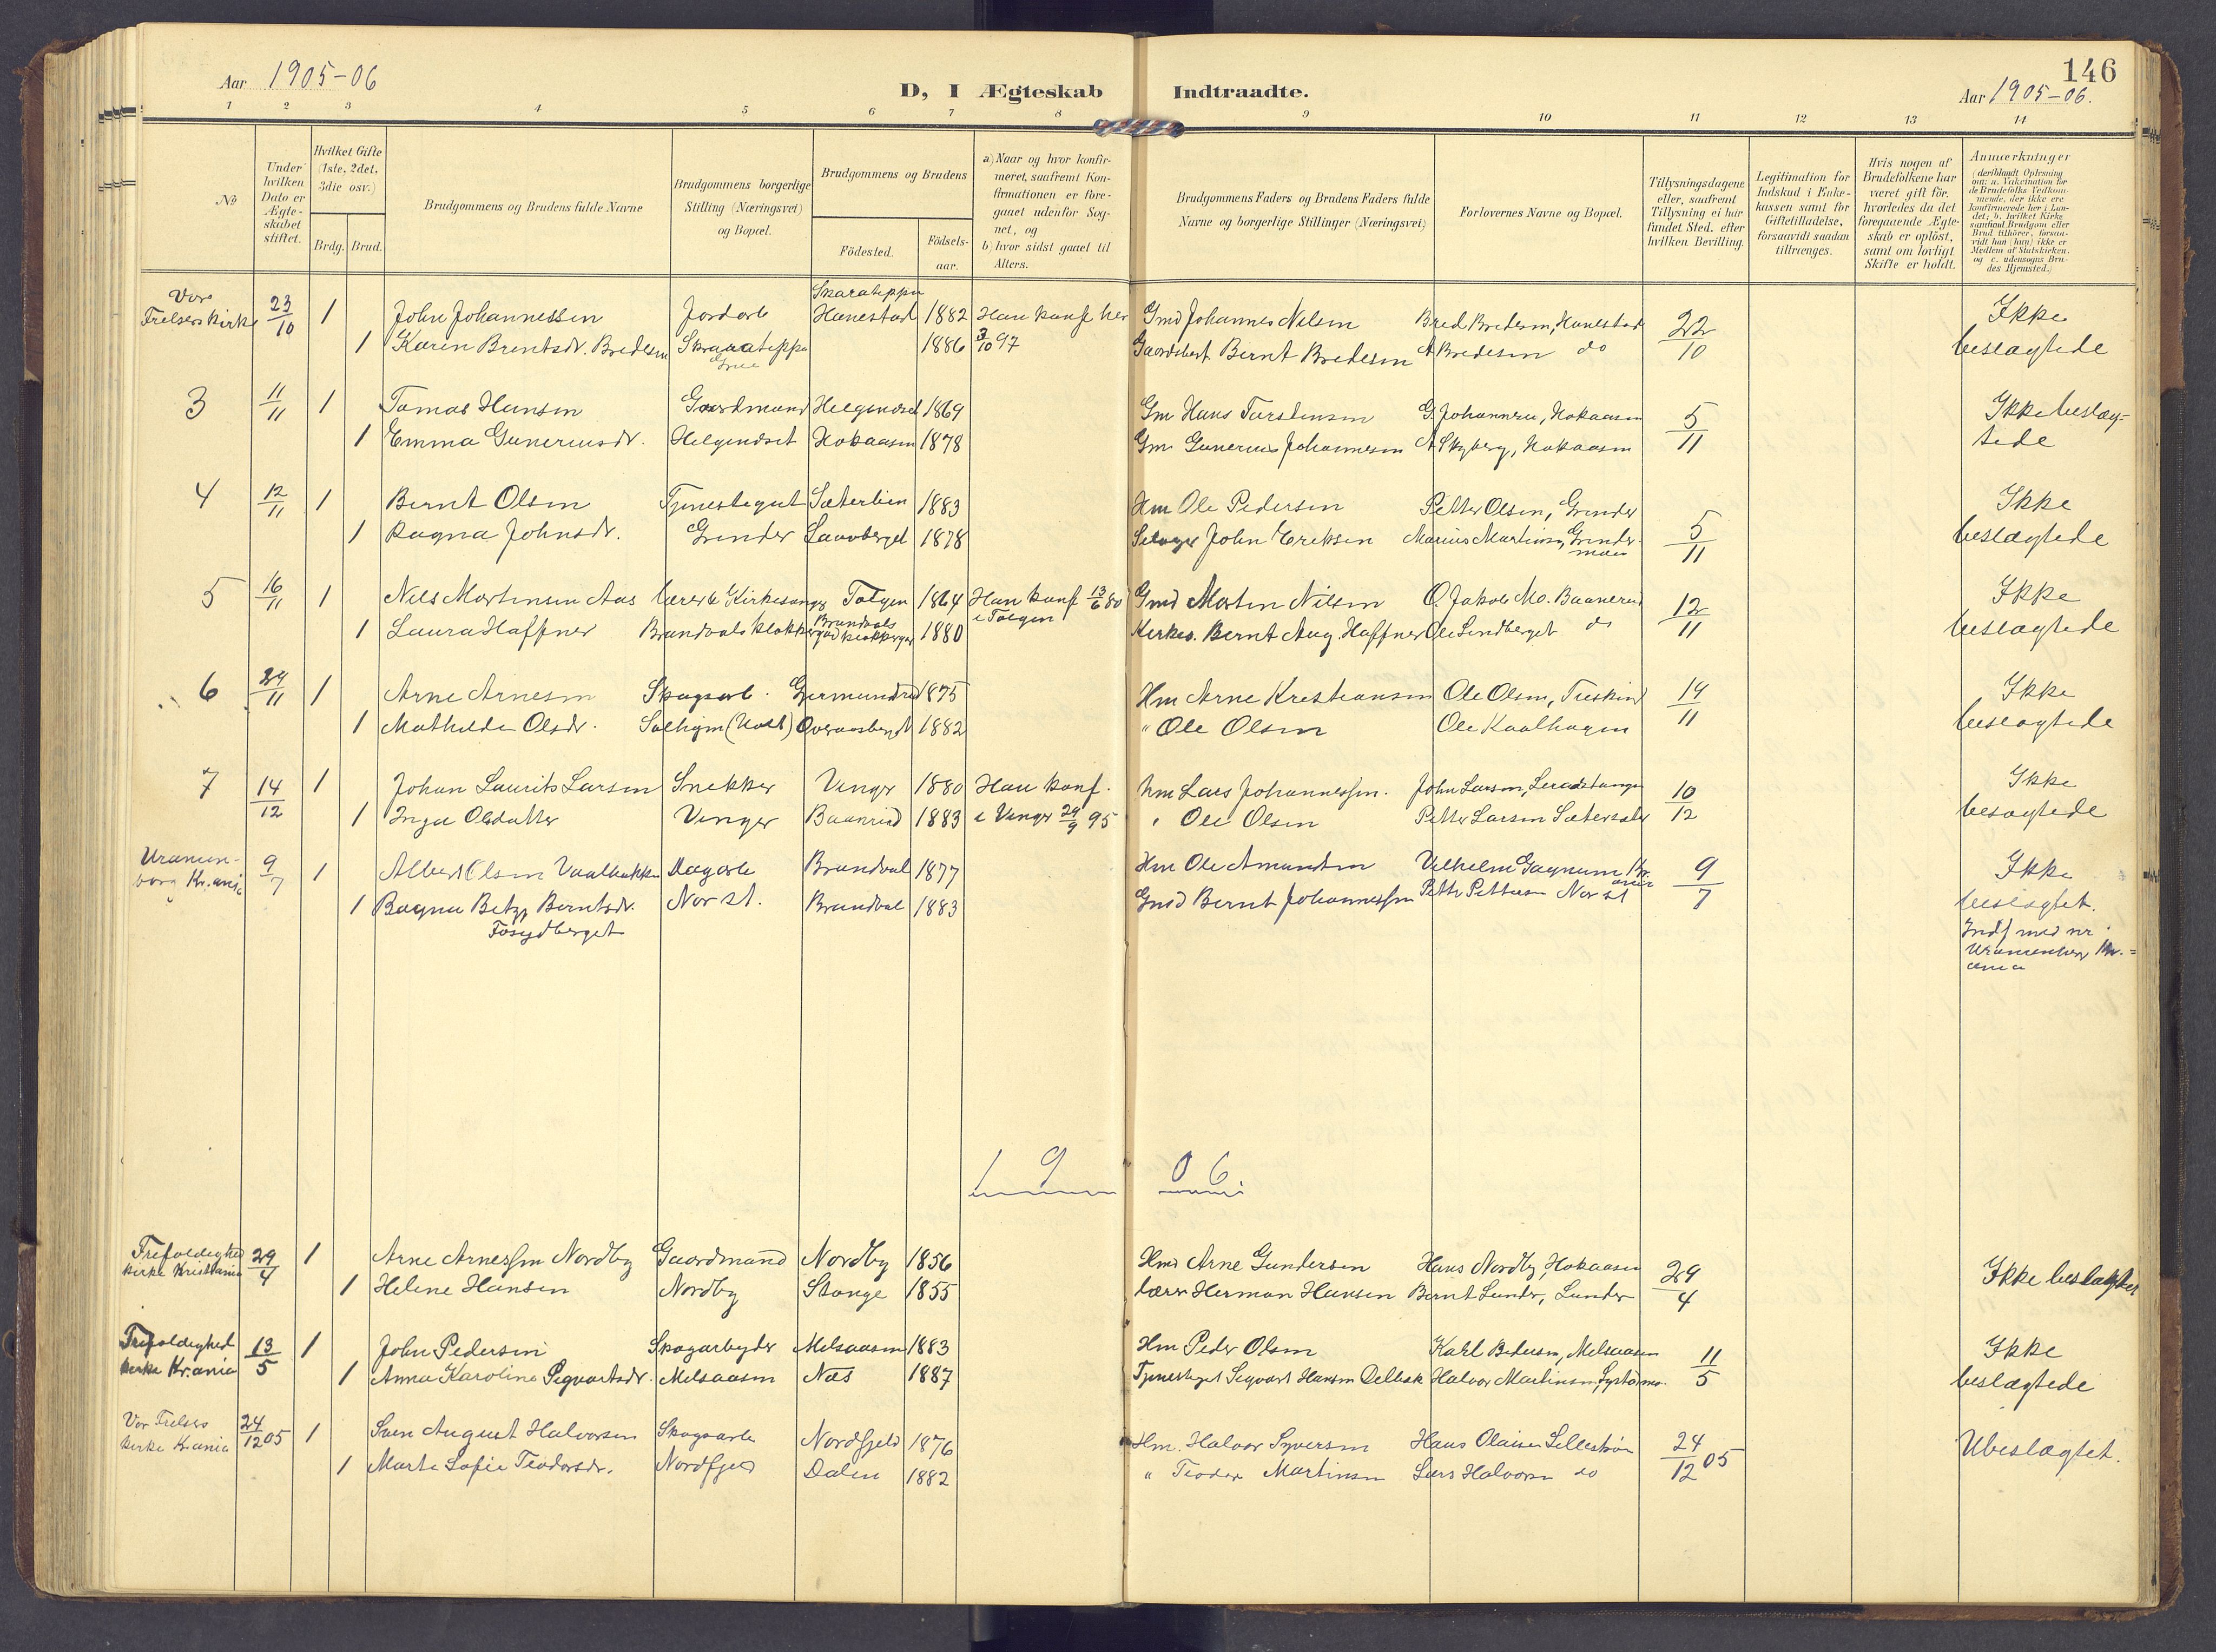 146
Aar 1905-06
D, I Ægteskab Indtraadte.
Aar 1905-06.
1 2 3 4 5 6 7 8 9 10 11 12 13 14
No
Under hvilken Dato er Ægteskabet stiftet.
Hvilket Gifte (1ste, 2det, 3die osv.)
Brdg. Brud.
Brudgommens og Brudens fulde Navne
Brudgommens borgerlige Stilling (Næringsvei) og Bopæl.
Brudgommens og Brudens
Födested. Födsels-aar.
a) Naar og hvor konfir-
meret, saafremt Kon-
firmationen er fore-
gaaet udenfor Sog-
net, og
b) hvor sidst gaaet til
Alters.
Brudgommens Faders og Brudens Faders fulde
Navne og borgerlige Stillinger (Næringsvei)
Forlovernes Navne og Bopæl.
Tillysningsdagene
eller, saafremt
Tillysning ei har
fundet Sted, efter
hvilken Bevilling.
Legitimation for
Indskud i Enke-
kassen samt for
Giftetilladelse,
forsaavidt saadan
tiltrænges.
Hvis nogen af
Brudefolkene har
været gift för,
hvorledes da det
foregaaende Ægte-
skab er oplöst,
samt om lovligt
Skifte er holdt.
Anmærkninger
(deriblandt Oplysning
om: a. Vakcination for
de Brudefolks Vedkom-
mende, der ikke ere
konfirmerede her i Lan-
det; b. hvilket Kirke
samfund Brudgom eller
Brud tilhörer, forsaa-
vidt han (hun) ikke er
Medlem af Statskirken,
og c. udensogns Bru-
des Hjemsted.)
Vor Frelsers kirke 23/10 1 John Johannessen Jordarb Hanestad 1882 Han konf her Gmd Johannes Nilsen Bred Bredesen, Hanestad 22/10 Ikke
1 Karen Brentsdr. Bredesen 1886 3/10 97 Bernt Bredesen A Bredesen do beslægtede
3 11/11 1 Tomas Hansen Gaardmand Helgeudset 1869 Gm Hans Torstensen Hokaasen 5/11 Ikke beslæg-
1 Emma Gunerius dr. Helgeudset Hokaasen 1878 Gm Gunerius Johannesen A Skyberg, Hokaasen tede
4 12/11 1 Bernt Olsen Tjenestegut Sæterlien 1883 Hm Ole Pedersen Petter Olsen, Grinder 5/11 Ikke
1 Ragna Johnsdr. Grinder 1878 John Eriksen Marius Martinsen, Grinder- beslægtede
moen
5 16/11 1 Nils Martinsen Aas lærer & Kirkesanger Tolgen 1864 Han konf 13/6 80 i Tolgen Gmd Morten Nilsen O. Jakob Mo. Baanerud 12/11 Ikke
1 Laura Haffner Brandvals klokkergaard Brandvals klokkergaard 1880 Kirkes. Bernt Aug. Haffner Ole Lindberget do beslægtede
6 24/11 1 Arne Arnesen Skogsarb. Germundrud 1875 Hm Arne Kristiansen Ole Olsen, Tuskind 19/11 Ikke
1 Mathilde Olsdr. Overaasberget 1882 " Ole Olsen Ole Kaalhagen beslægtede
7 14/12 1 Johan Laurits Larsen Snekker Vinger 1880 Han konf. Hm Lars Johannessen. John Larsen, 10/12 Ikke
1 Inga Olsdatter Vinger Baanrud 1883 i Vinger 29/9 95 " Ole Olsen Petter Larsen Sætersæter besagtede
Uranien-
borg Kr.ania 9/7 1 Albert Olsen Vaalbakken Dagarb Brandval 1877 Hm Ole Amundsen Vilhelm Gagnum Kr.ania 9/7 Ikke
1 Ragna Betzy Berntsdr. Nor st. Brandval 1883 Gmd Bernt Johannessen Petter Pettersen Nor st beslægtet.
Indf med nr
Uranienborg Kr.=
ania
1906
Trefoldighed kirke Kristiania 29/4 1 Arne Arnessen Nordby Gaardmand Nordby 1856 Hmd Arne Gundersen Hans Nordby, Hokaasen 29/4 Ikke beslægtet
1 Helene Hansen Nordby Stange 1855 Lærer Herman Hansen Bernt Lunder, Lunder
Trefoldighed kirke Kr.ania 13/5 1 John Pedersen Skogarbeyder Melsaasen 1883 Hm Peder Olsen Karl Pedersen, Melsaasen 11/5 Ikke
1 Anna Karoline Segvartsdr. Melsaasen Næs 1887 Tjenestegut Segvart Hansen Halvor Martinsen, beslægtede
Vor Frelsers kirke Kr.ania 24/12 05 1 Sven August Halvorsen Skogsarb Nordfjeld 1876 Hm. Halvor Syversen Hans Olaisen Lillestrøm 24/12 05 Ubeslægtet.
1 Marte Sofie Teodorsdr. Nordfjeld Dalen 1882 " Teodor Martinsen Lars Halvorsen do